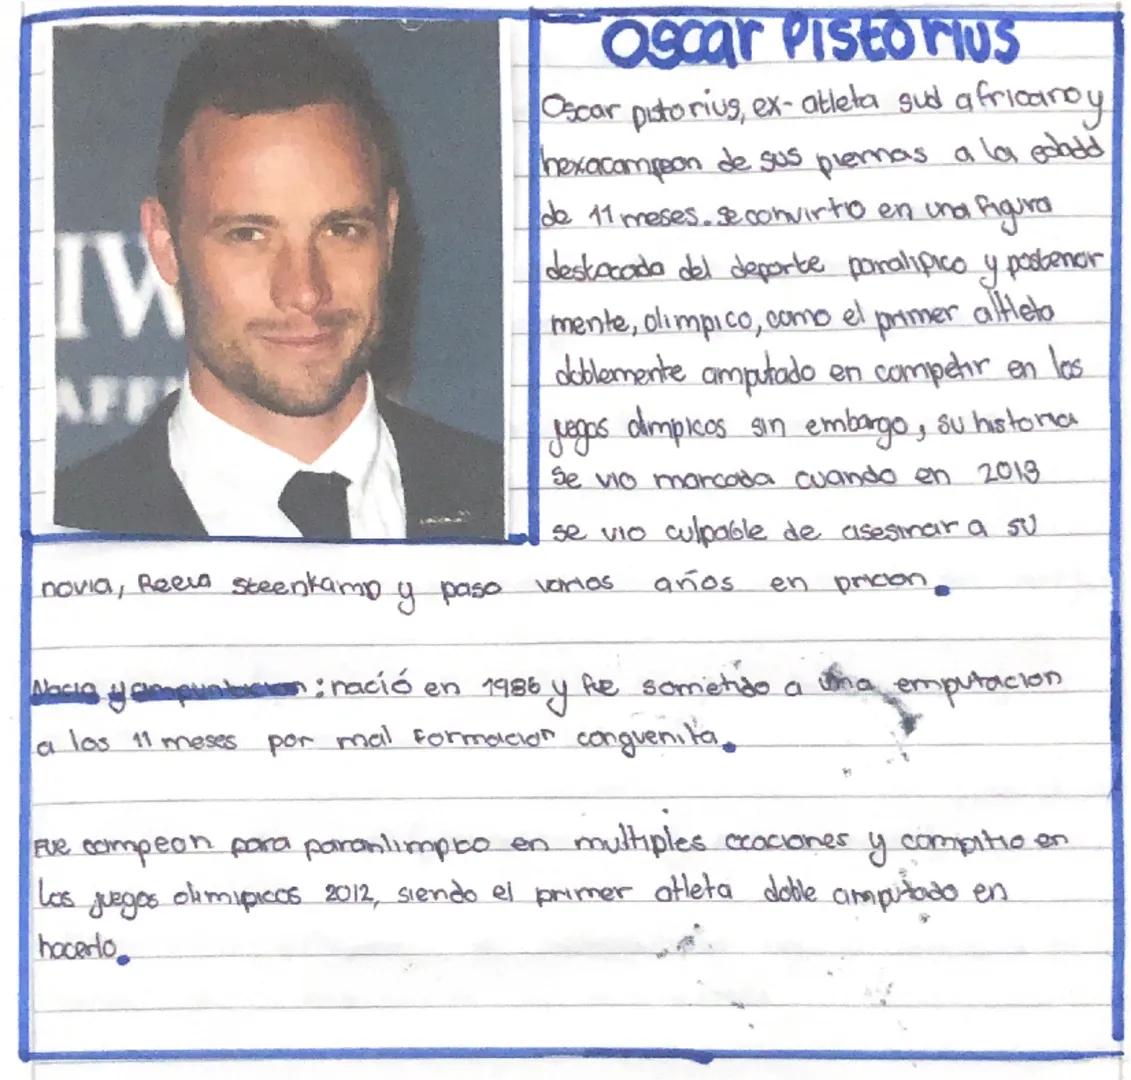 Oscar Pistorius
IW
AFFI
Oscar pistorius, ex-atleta sud africano y
hexacampeon de sus piernas a la edadd
de 11 meses. se convirtio en una figura
destacada del deporte paralipico y posterior
mente, olimpico, como el primer altleta
doblemente amputado en competir en los
juegos olimpicos sin embargo, su historia
se vio marcada cuando en 2013
se vio culpable de asesinar a su
novia, Reeva Steenkamp y paso varios años en pricon.
Nacia y ampuntacion: nació en 1986 y fue sometido a una emputacion
a los 11 meses por mal formacion conguenita.
FUE campeon para paranlimpico en multiples ocaciones y compitio en
los juegos olimipicos 2012, siendo el primer atleta doble amputado en
hacerlo.